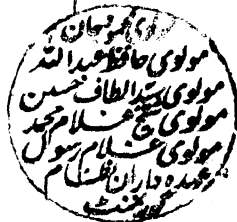 مولوی حافظ عبد اللہ
مولوی سید الطاف حسین
مولوی شیخ غلام محمد
مولوی غلام رسول
وعہدہ داران نظام
گورنمنٹ